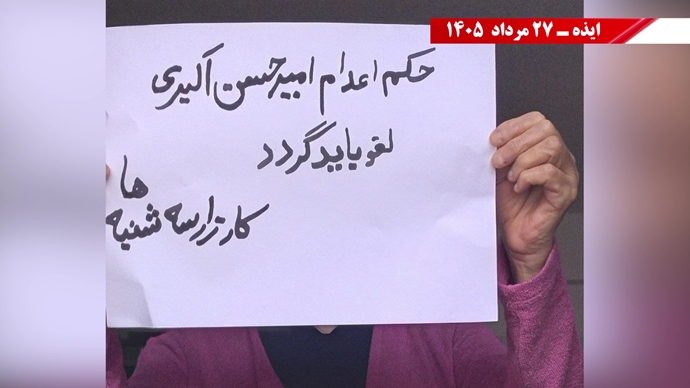 ایذه ــ ۲۷ مرداد ۱۴۰۵
حکم اعدام امیرحسین اکبری
لغو باید گردد
کارزار سه شنبه ها